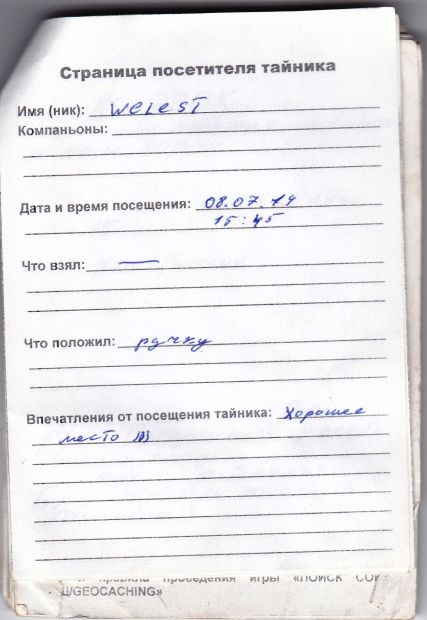 Страница посетителя тайника
Имя (ник): WELEST
Компаньоны:
Дата и время посещения: 08.07.14
15:45
Что взял: —
Что положил: ручку
Впечатления от посещения тайника: Хорошее
место )))
правила проведения игры «ПОИСК СОК
Щ/GEOCACHING»